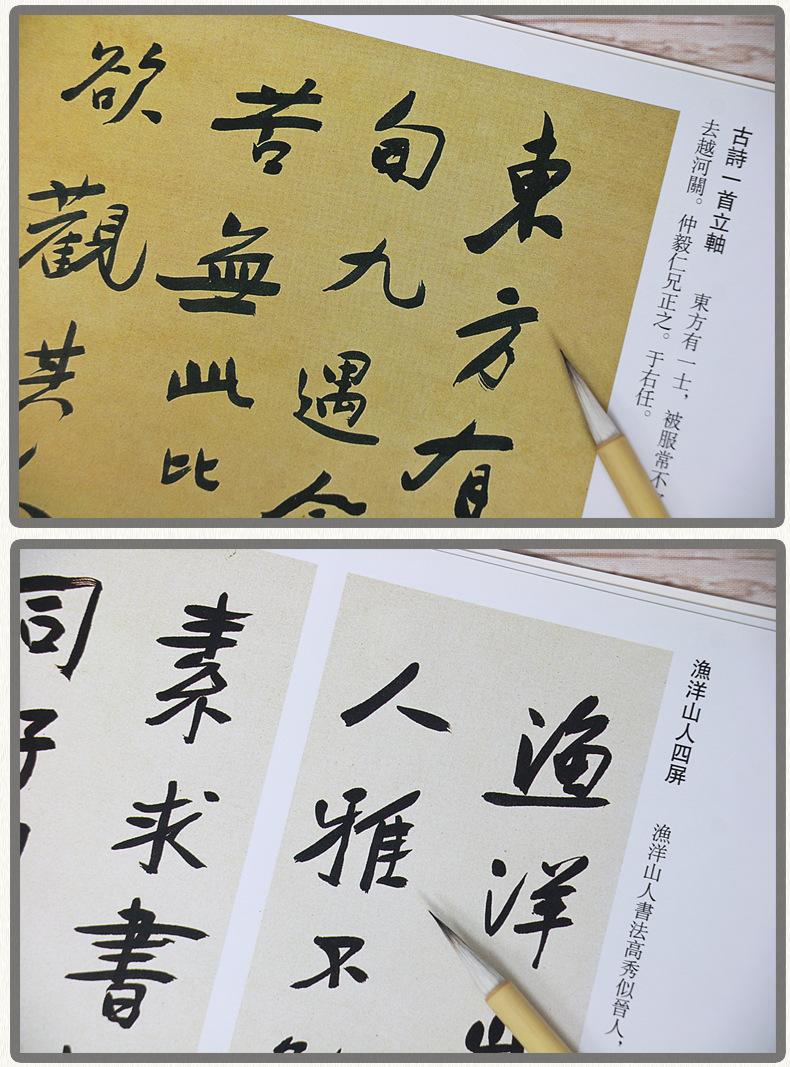 古詩一首立軸
東方有一士，被服常不
去越河關。仲毅仁兄正之。于右任。
東方有
旬九遇
苦無此比
欲觀其
漁洋山人四屏
漁洋山人書法高秀似晉人，
漁洋山
人雅不
素求書
同好